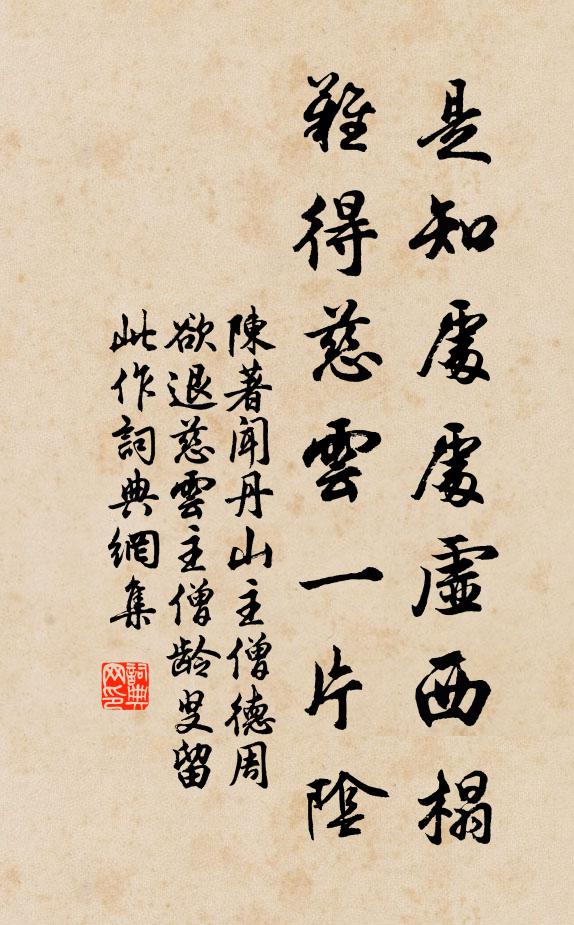 是知處處虛西榻
難得慈雲一片陰
陳著聞丹山主僧德周
欲退慈雲主僧龄叟留
此作詞典網集
詞典网印